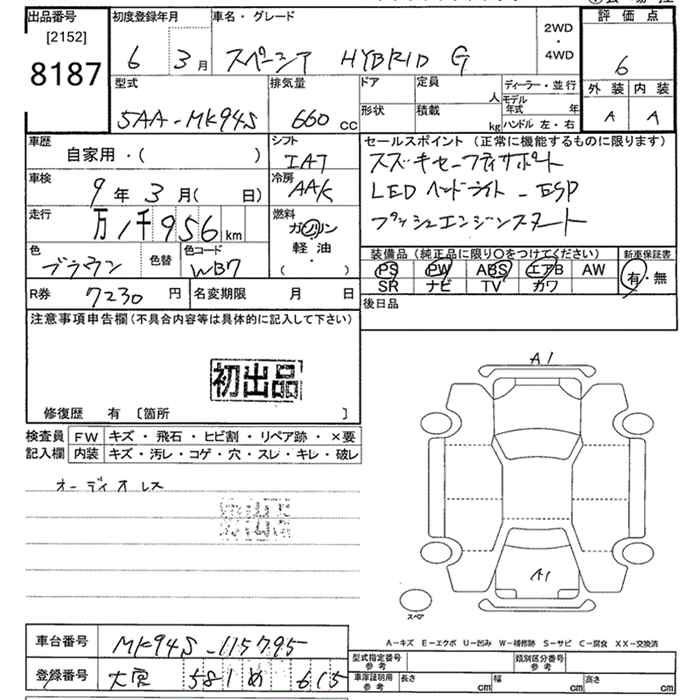 出品番号 初度登録年月 車名・グレード 2WD・4WD 評価点
[2152]
8187 6 3月 スペーシア HYBRID G 6
型式 排気量 ドア 定員 人 ディーラー・並行 外装 内装
5AA-MK94S 660 cc 形状 積載 kg モデル年式 年 ハンドル 左・右 A A
車歴 自家用・( ) シフト IAT セールスポイント(正常に機能するものに限ります)
車検 9年3月( 日) 冷房 AAC スズキセーフティサポート
LED ヘッドライト - ESP
走行 万1千956km 燃料 ガソリン 軽油・( ) プッシュエンジンスタート
色 ブラウン 色替 色コード WB7 装備品(純正品に限り○をつけてください) 新車保証書
PS PW ABS エアB AW 有・無
SR ナビ TV カワ
R券 7230円 名変期限 月 日 後日品
注意事項申告欄(不具合内容等は具体的に記入して下さい)
初出品
A1
修復歴 有 〔箇所 〕
検査員 FW キズ・飛石・ヒビ割・リペア跡・×要
記入欄 内装 キズ・汚レ・コゲ・穴・スレ・キレ・破レ
オーディオレス
初出品
A1
スペア
A-キズ E-エクボ U-凹み W-補修跡 S-サビ C-腐食 XX-交換済
車台番号 MK94S-115795 型式指定番号 参考 類別区分番号 参考
登録番号 大宮 581 め 615 車庫証明用 参考 長さ cm 幅 cm 高さ cm